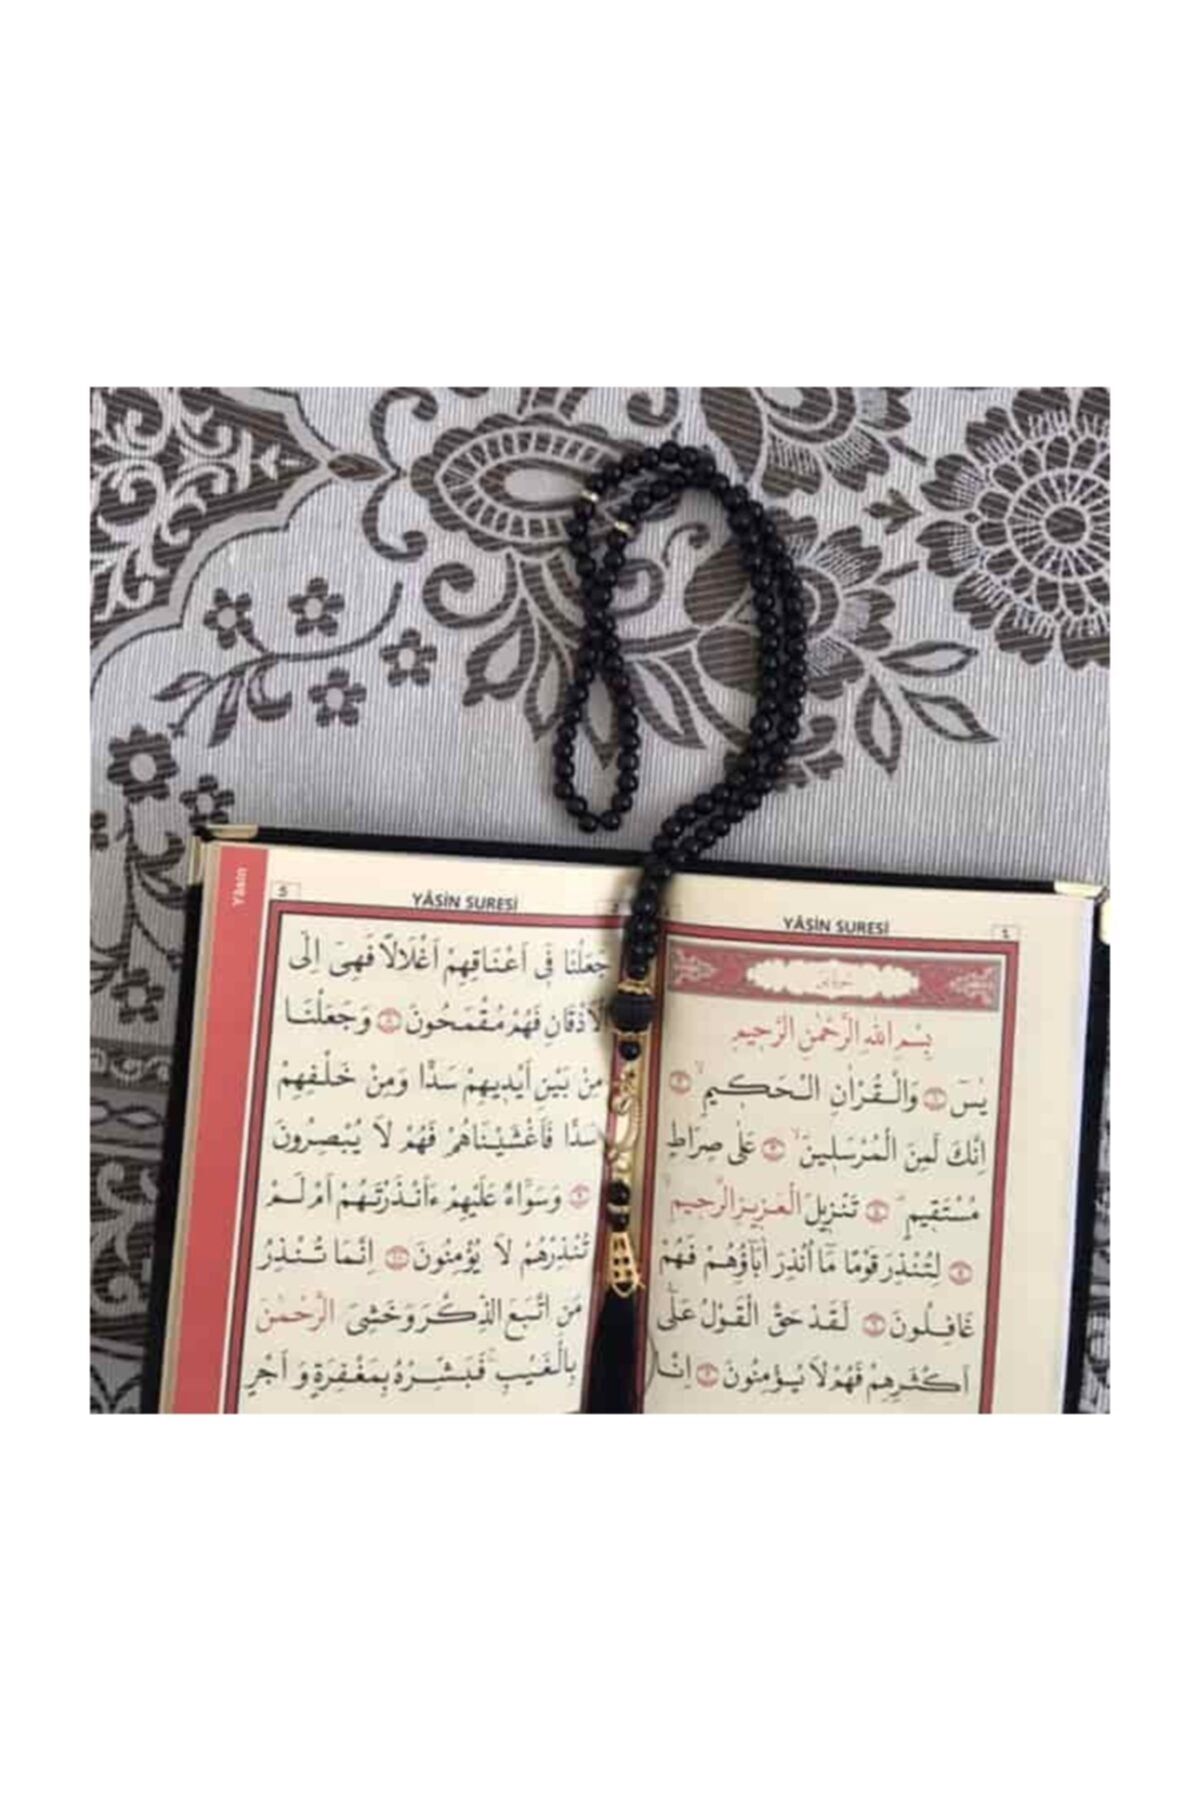 YÂSİN SURESİ
بِسْمِ اللهِ الرَّحْمٰنِ الرَّحِيمِ
يٰسٓ ۝ وَالْقُرْاٰنِ الْحَكِيمِ ۝
اِنَّكَ لَمِنَ الْمُرْسَلِينَ ۝ عَلٰى صِرَاطٍ
مُسْتَقِيمٍ ۝ تَنْزِيلَ الْعَزِيزِ الرَّحِيمِ
۝ لِتُنْذِرَ قَوْمًا مَٓا اُنْذِرَ اٰبَٓاؤُهُمْ فَهُمْ
غَافِلُونَ ۝ لَقَدْ حَقَّ الْقَوْلُ عَلٰٓى
اَكْثَرِهِمْ فَهُمْ لَا يُؤْمِنُونَ ۝ اِنَّا
Yâsin
5
YÂSİN SURESİ
جَعَلْنَا فِٓى اَعْنَاقِهِمْ اَغْلَالًا فَهِىَ اِلَى
الْاَذْقَانِ فَهُمْ مُقْمَحُونَ ۝ وَجَعَلْنَا
مِنْ بَيْنِ اَيْدِيهِمْ سَدًّا وَمِنْ خَلْفِهِمْ
سَدًّا فَاَغْشَيْنَاهُمْ فَهُمْ لَا يُبْصِرُونَ
۝ وَسَوَٓاءٌ عَلَيْهِمْ ءَاَنْذَرْتَهُمْ اَمْ لَمْ
تُنْذِرْهُمْ لَا يُؤْمِنُونَ ۝ اِنَّمَا تُنْذِرُ
مَنِ اتَّبَعَ الذِّكْرَ وَخَشِىَ الرَّحْمٰنَ
بِالْغَيْبِ فَبَشِّرْهُ بِمَغْفِرَةٍ وَ اَجْرٍ